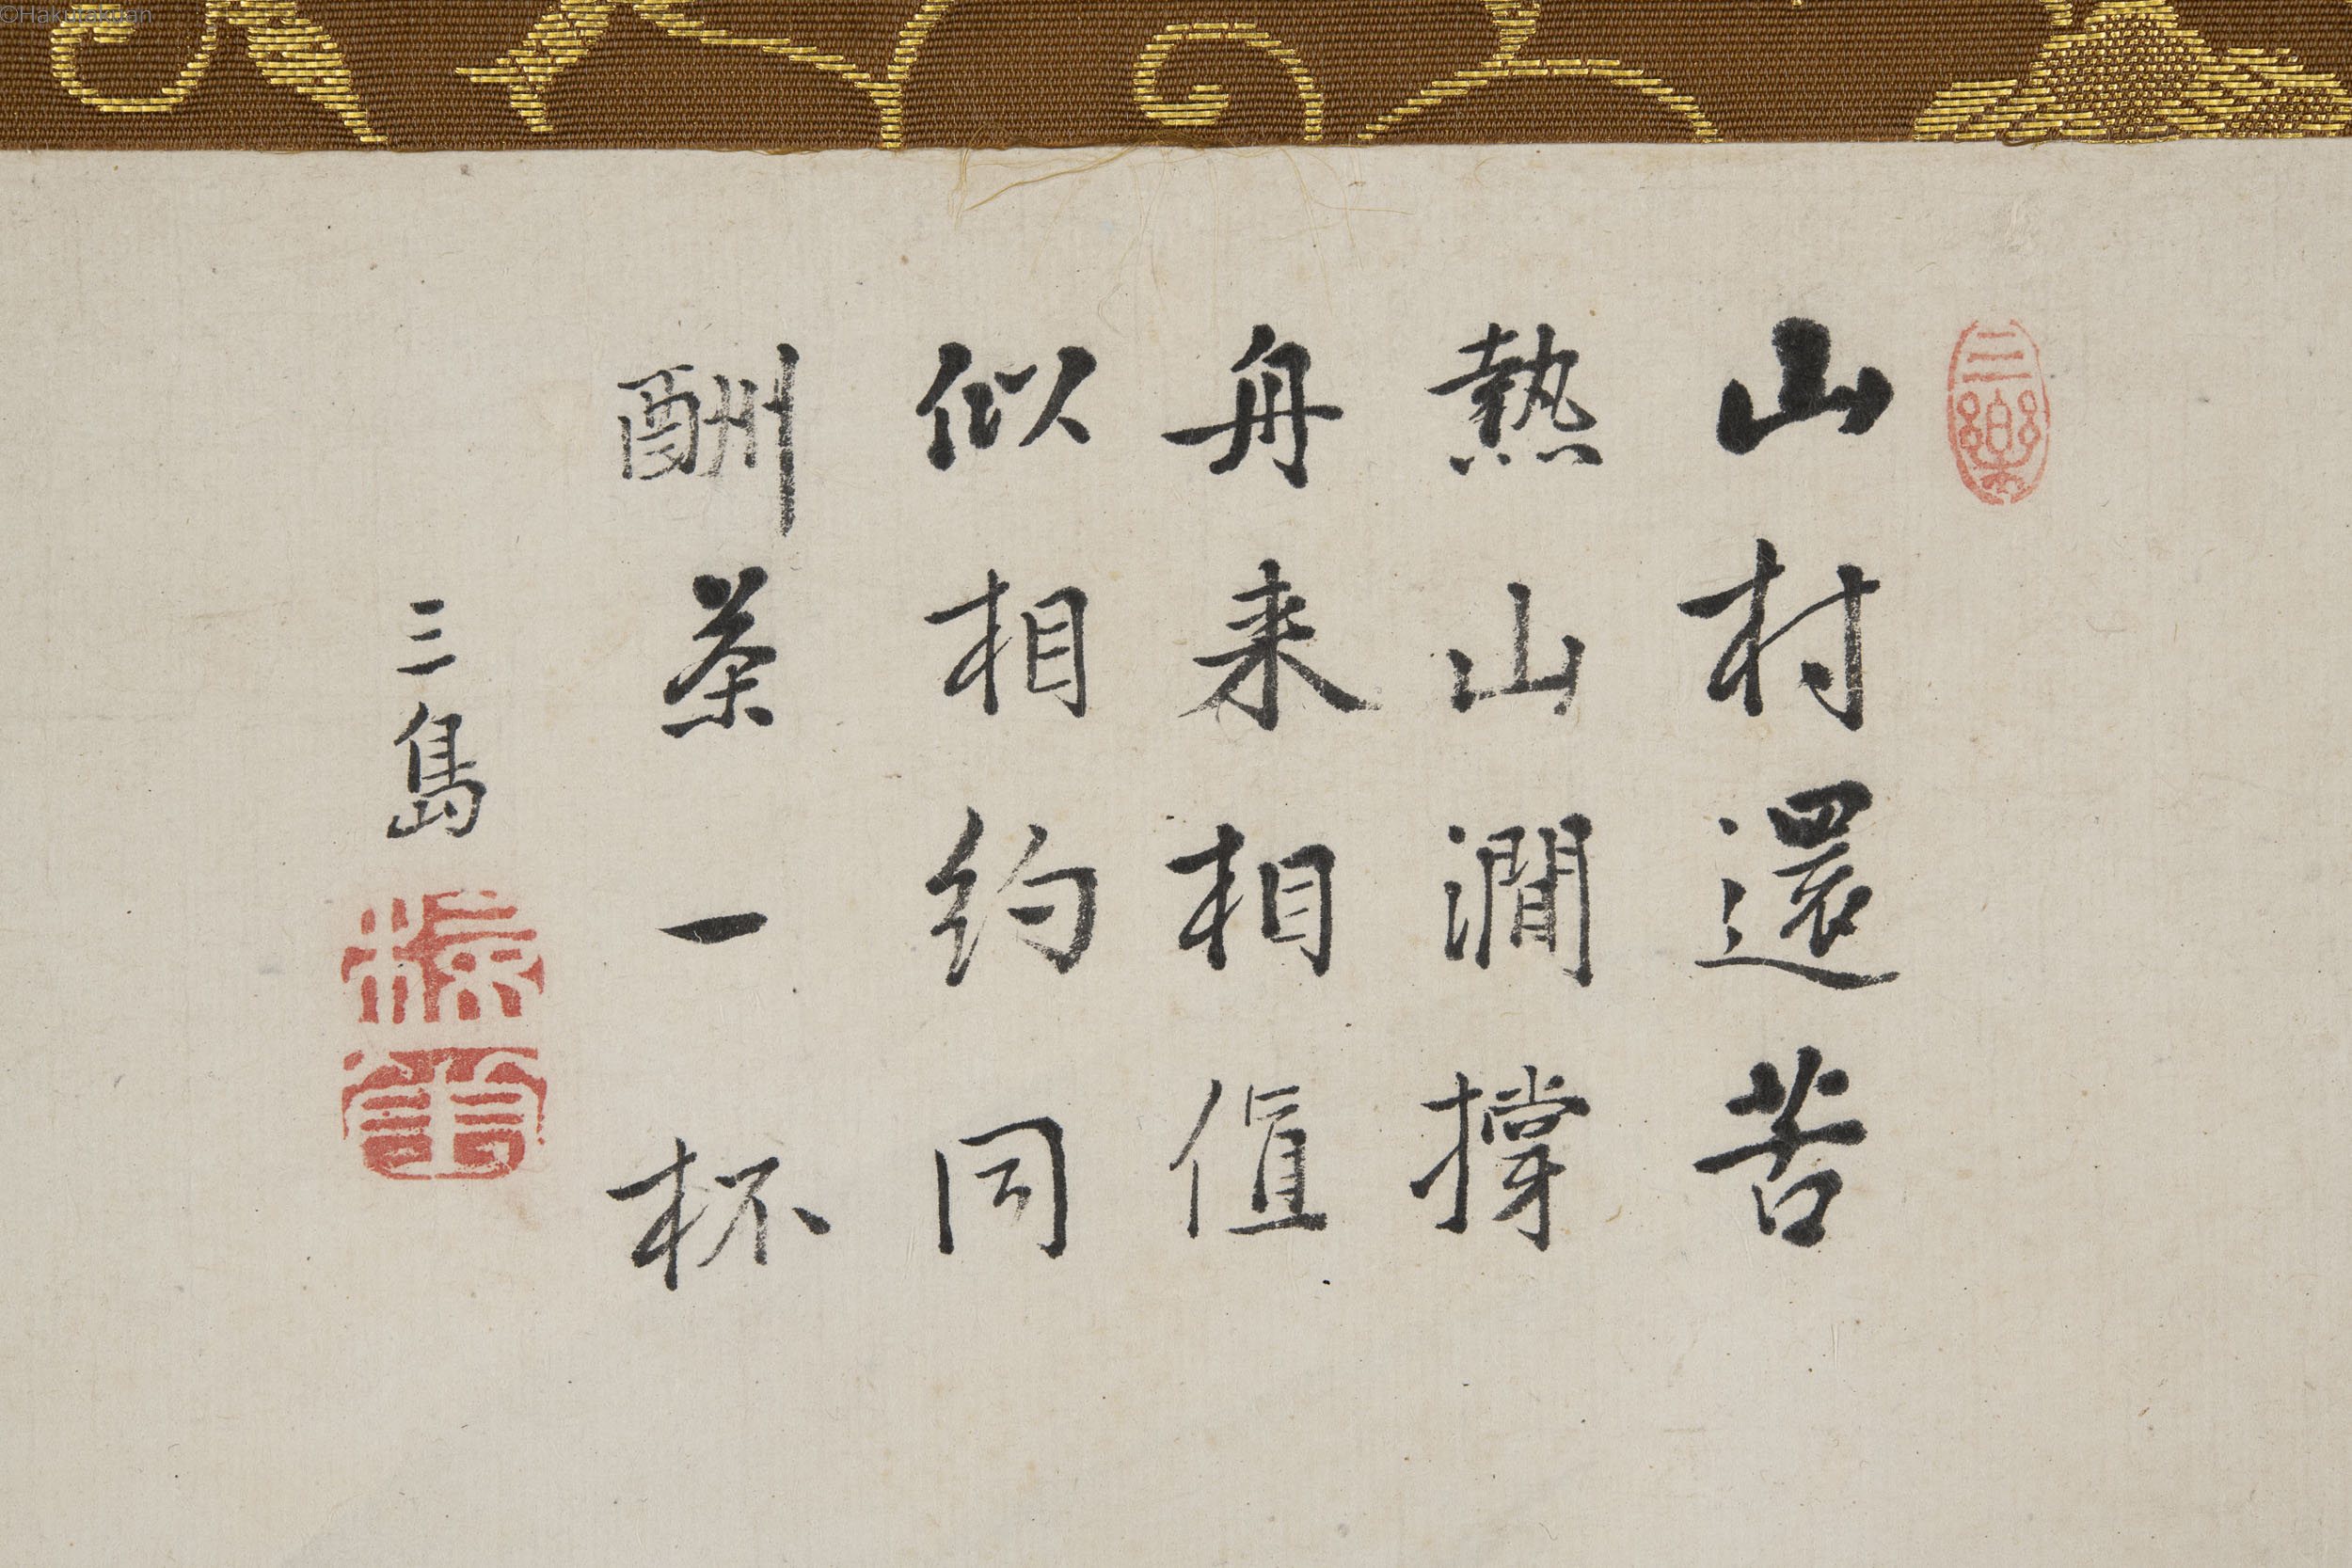 山村還苦
熱山澗撐
舟来相値
似相約同
酬茶一杯
三島
三樂
©Hakutakuan